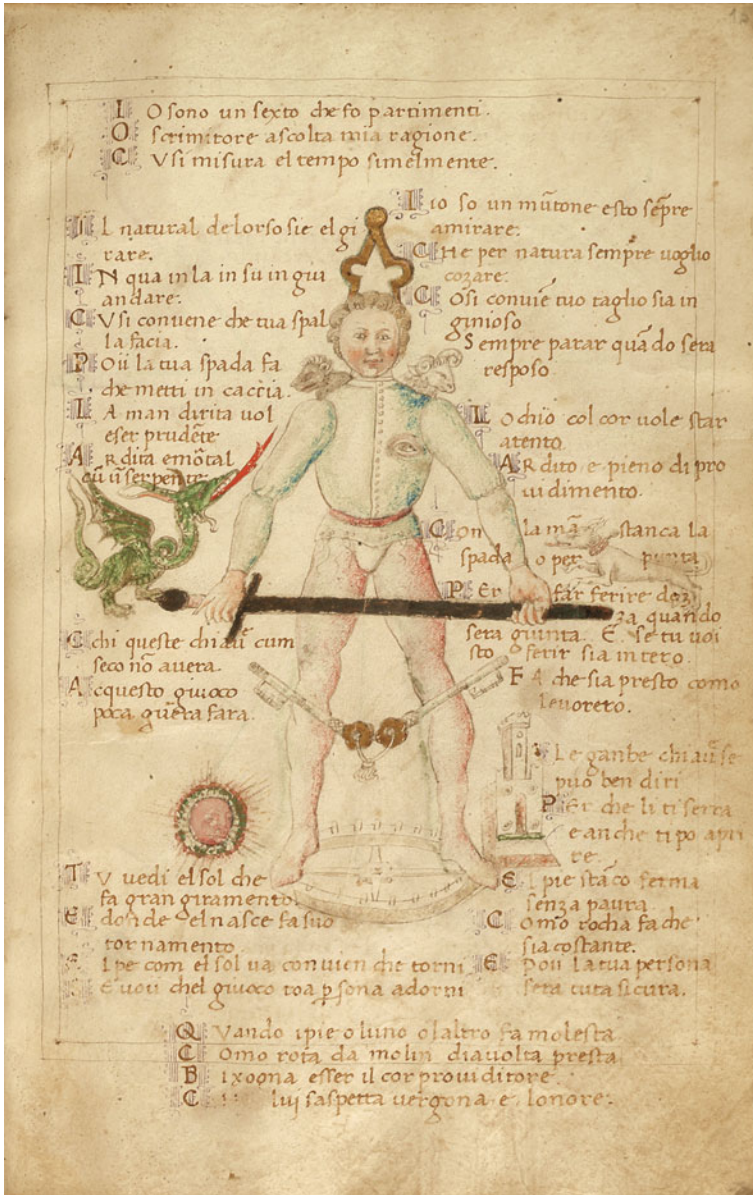 IO sono un sexto che fo partimenti.
O scrimitore ascolta mia ragione.
CVsi misura el tempo simelmente.
IL natural de lorso sie el gi
rare.
IN qua in la in su in giu
andare:
CVsi convene che tua spal
la facia.
POii la tua spada fa
che metti in caccia.
LA man dirita vol
eser prudēte
ARdita e mōtal
cū ū serpente
Iio so un mūtone e sto sēpre
amirare:
CHe per natura sempre voglio
cozare:
COsi convie tuo taglio sia in
ginioso
Sempre parar quādo sera
resposo
LOchio col cor vole star
atento
ARdito e pieno di pro
vidimento.
Con la mā stanca la
spada o per punta
PEr far ferire dozi
za quando
sera giunta. E se tu voi
sto ferir sia intero.
FA che sia presto como
levoreto.
Cchi queste chiaū cum
seco nō avera.
Acquesto giuoco
poca gūera fara.
Le ganbe chiaū se
puo ben diri
PEr che li ti serra
e anche ti po apri
re.
TV vedi el sol che
fa gran giramento
E donde el nasce fa suo
tornamento
Ipe com el sol va convien che torni
E voii chel giuoco toa psona adorni
El pie stāco ferma
senza paura.
COmo rocha fa che
sia costante.
E Poii la tua persona
sera tuta sicura.
QVando ipie o luno o laltro fa molesta
COmo rota da molin dia volta presta
BIxogna esser il cor providitore.
C lui saspetta vergona e lonore.